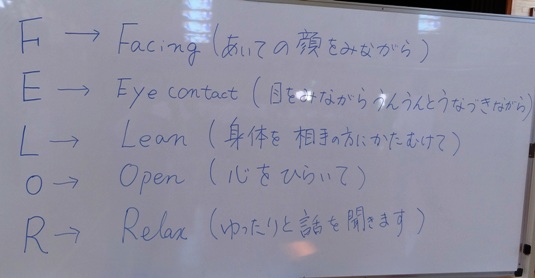 F → Facing (あいての顔をみながら)
E → Eye contact (目をみながらうんうんとうなづきながら)
L → Lean (身体を相手の方にかたむけて)
O → Open (心をひらいて)
R → Relax (ゆったりと話を聞きます)